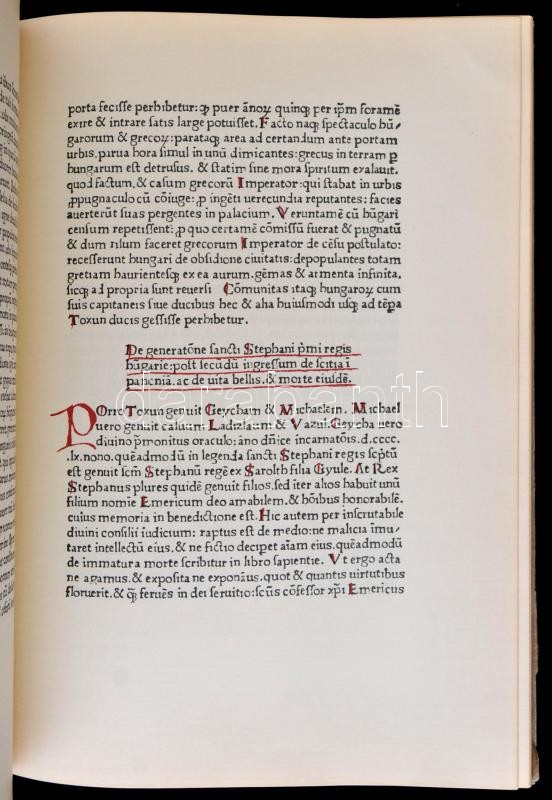 porta fecisse perhibetur: ꝙ puer ānoꝝ quinqꝫ per ip̄m foramē
exire & intrare satis large potuisset. Facto naqꝫ spectaculo hū-
garorum & grecoꝝ: parataqꝫ area ad certandum ante portam
urbis, parua hora simul in unū dimicantes: grecus in terram ꝑ
hungarum est detrusus, & statim sine mora spiritum exalauit.
quod factum, & casum grecorū Imperator: qui stabat in urbis
ꝓpugnaculo cū cōiuge: ꝓ ingēti uerecundia reputantes: facies
auerterūt suas pergentes in palacium. Veruntamē cū hūgari
censum repetissent: ꝓ quo certamē cōmissū fuerat & pugnatū
& dum risum faceret grecorum Imperator de cēsu postulato:
recesserunt hungari de obsidione ciuitatis: depopulantes totam
gretiam haurientesqꝫ ex ea aurum. gēmas & armenta infinita.
sicqꝫ ad propria sunt reuersi Cōmunitas itaqꝫ hungaroꝝ cum
suis capitaneis siue ducibus hec & alia huiusmodi usqꝫ ad tēꝑa
Toxun ducis gessisse perhibetur.
De generatōne sancti Stephani p̄mi regis
hūgarie: post secūdū ingressum de scitia ī
pānoniā. ac de uita bellis. & morte eiusdē.
POrro Toxun genuit Geycham & Michaelem. Michael
uero genuit caluum Ladizlaum & Vazul. Geyba uero
diuino p̄monitus oraculo: āno dn̄ice incarnatōis. d.cccc.
.lx.nono. quēadmodū in legenda sancti Stephani regis sc̄ptū
est genuit sc̄m Stephanū regē ex Saroltb filia Gyule. At Rex
Stephanus plures quidē genuit filios. sed iter alios habuit unū
filium nomīe Emericum deo amabilem. & hōibus honorabilē.
cuius memoria in benedictione est. Hic autem per inscrutabile
diuini consilii iudicium: raptus est de medio: ne malicia īmu-
taret intellectū eius. & ne fictio decipet aīam eius. quēadmodū
de immatura morte scribitur in libro sapientie. Vt ergo acta
ne agamus. & exposita ne exponāus. quot & quantis uirtutibus
floruerit. & ꝙ̄ feruēs in dei seruitio: sc̄us cōfessor xp̄i Emericus
darabanth